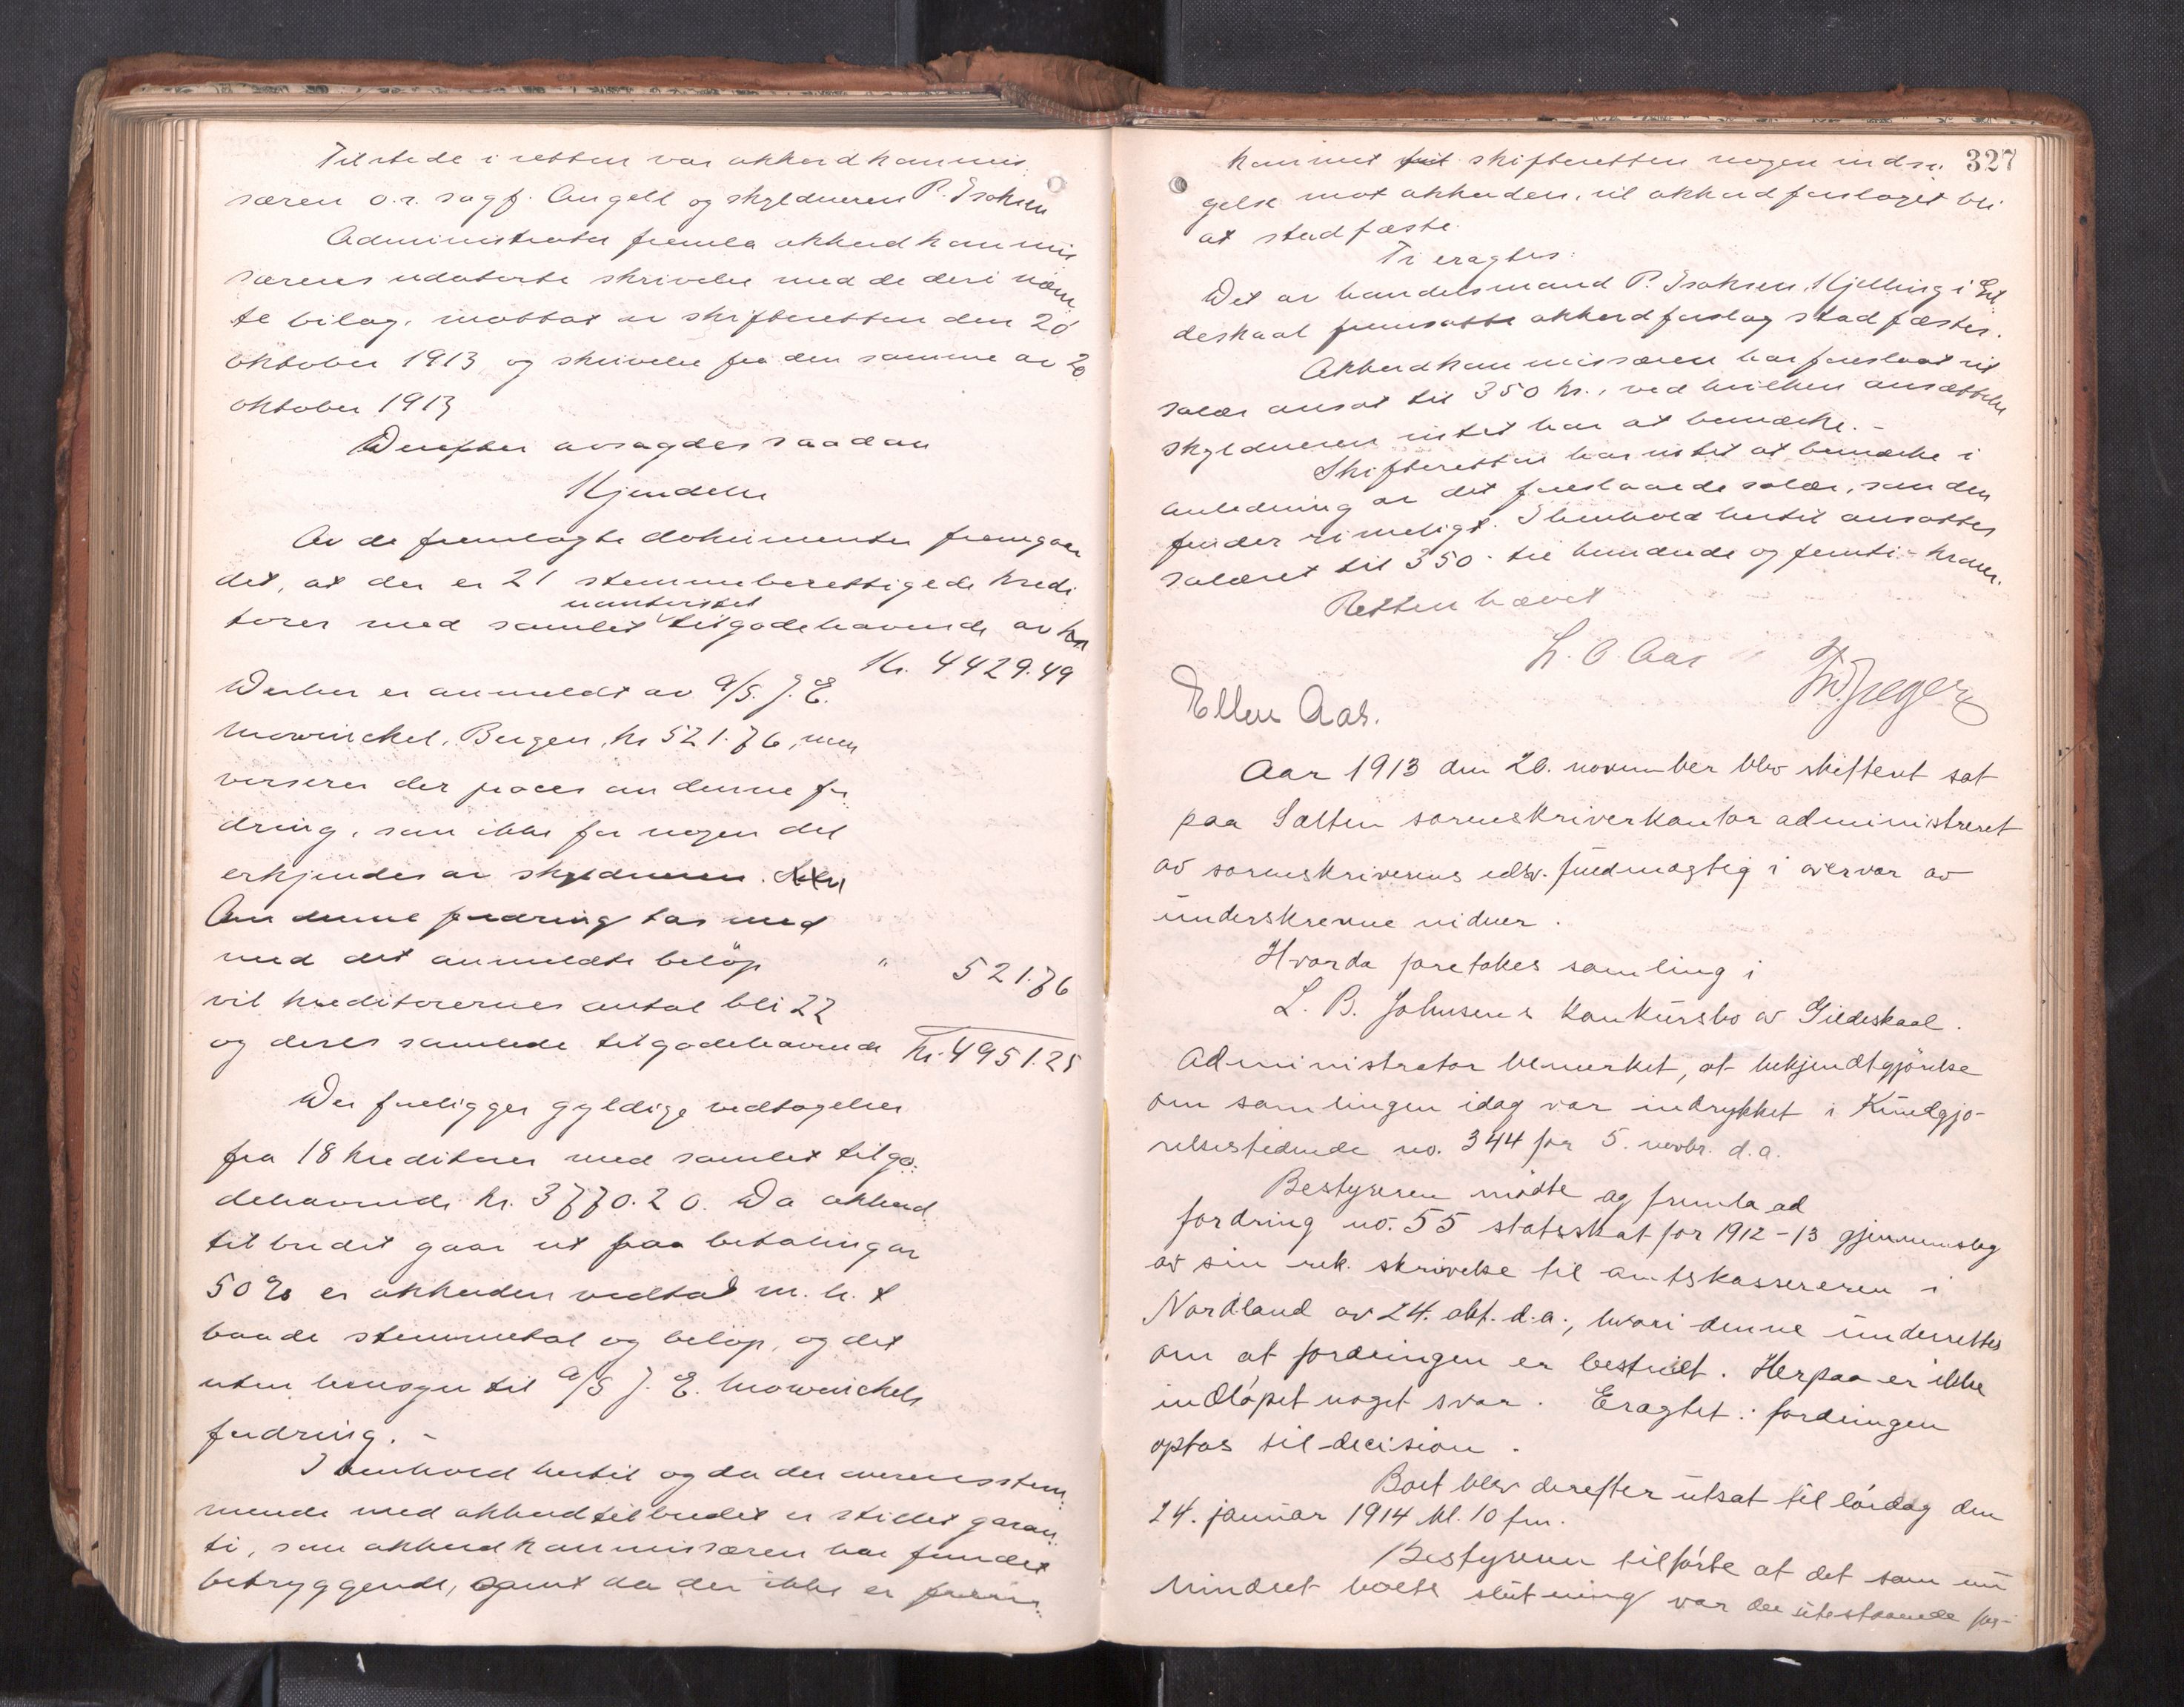 Tilstede i retten var akkordkommis
særen o.r. sagf. Angell og skyldneren P. Isaksen
Administrator fremla akkordkommis
særens udaterte skrivelse med de deri nævn
te bilag, mottat av skifteretten den 20
oktober 1913 og skrivelse fra den samme av 20
oktober 1913
Derefter avsagdes saadan
Kjendelse
Av de fremlagte dokumenter fremgaar
det, at der er 21 stemmeberettigede kredi
torer med samlet uantastet tilgodehavende av kr
Kr. 4429.49
Derhos er anmeldt av A/S. J. E.
Mowinckel, Bergen, kr 521.76, men
verserer der proces om denne for
dring, som ikke for nogen del
erkjendes av skyldneren.
Om denne fordring tas med
med det anmeldte beløp " 521.76
vil kreditorernes antal bli 22
og deres samlede tilgodehavende kr. 4951.25
Der foreligger gyldige vedtagelser
fra 18 kreditorer med samlet tilgo-
dehavende kr. 3770.20. Da akkord
tilbudet gaar ut paa betaling av
50% er akkorden vedtat m.h.t
baade stemmetal og beløp, og det
uten hensyn til A/S J. E. Mowinckels
fordring. -
I henhold hertil og da der overensstem-
mende med akkordtilbudet er stillet garan-
ti, som akkordkommissæren har fundet
betryggende, samt da der ikke er frem-
327
kommet for skifteretten nogen indsi-
gelse mot akkorden, vil akkordforslaget bli
at stadfæste.
Ti eragtes:
Det av handelsmand P. Isaksen, Kjelling i Gil
deskaal fremsatte akkordforslag stadfæstes.
Akkordkommissæren har foreslaat sit
salær ansat til 350 kr., ved hvilken ansættelse
skyldneren intet har at bemærke. -
Skifteretten har intet at bemærke i
anledning av det foreslaaede salær, som den
finder rimeligt. I henhold hertil ansattes
salæret til 350 - tre hundrede og femti - kroner.
Retten hævet
L. O. Aas
Ellen Aas.
Aar 1913 den 20. november blev skifteret sat
paa Salten sorenskriverkontor administreret
av sorenskriverens edsv. fuldmægtig i overvær av
underskrevne vidner.
Hvorda foretokes samling i
L. B. Johnsens konkursbo av Gildeskaal.
Administrator bemerket, at bekjendtgjørelse
om samlingen idag var indrykket i Kundgjø-
relsestidende no. 344 for 5. novbr. d.a.
Bestyreren mødte og fremla ad
fordring no. 55 statsskat for 1912-13 gjennemslag
av sin rek. skrivelse til amtskassereren i
Nordland av 24. okt. d.a., hvori denne underrettes
om at fordringen er bestridt. Herpaa er ikke
indløpet noget svar. Eragtet: fordringen
optas til decision.
Boet blev derefter utsat til lørdag den
24. januar 1914 kl. 10 fm.
Bestyreren tilførte at det som nu
hindret boets slutning var de utestaaende for-